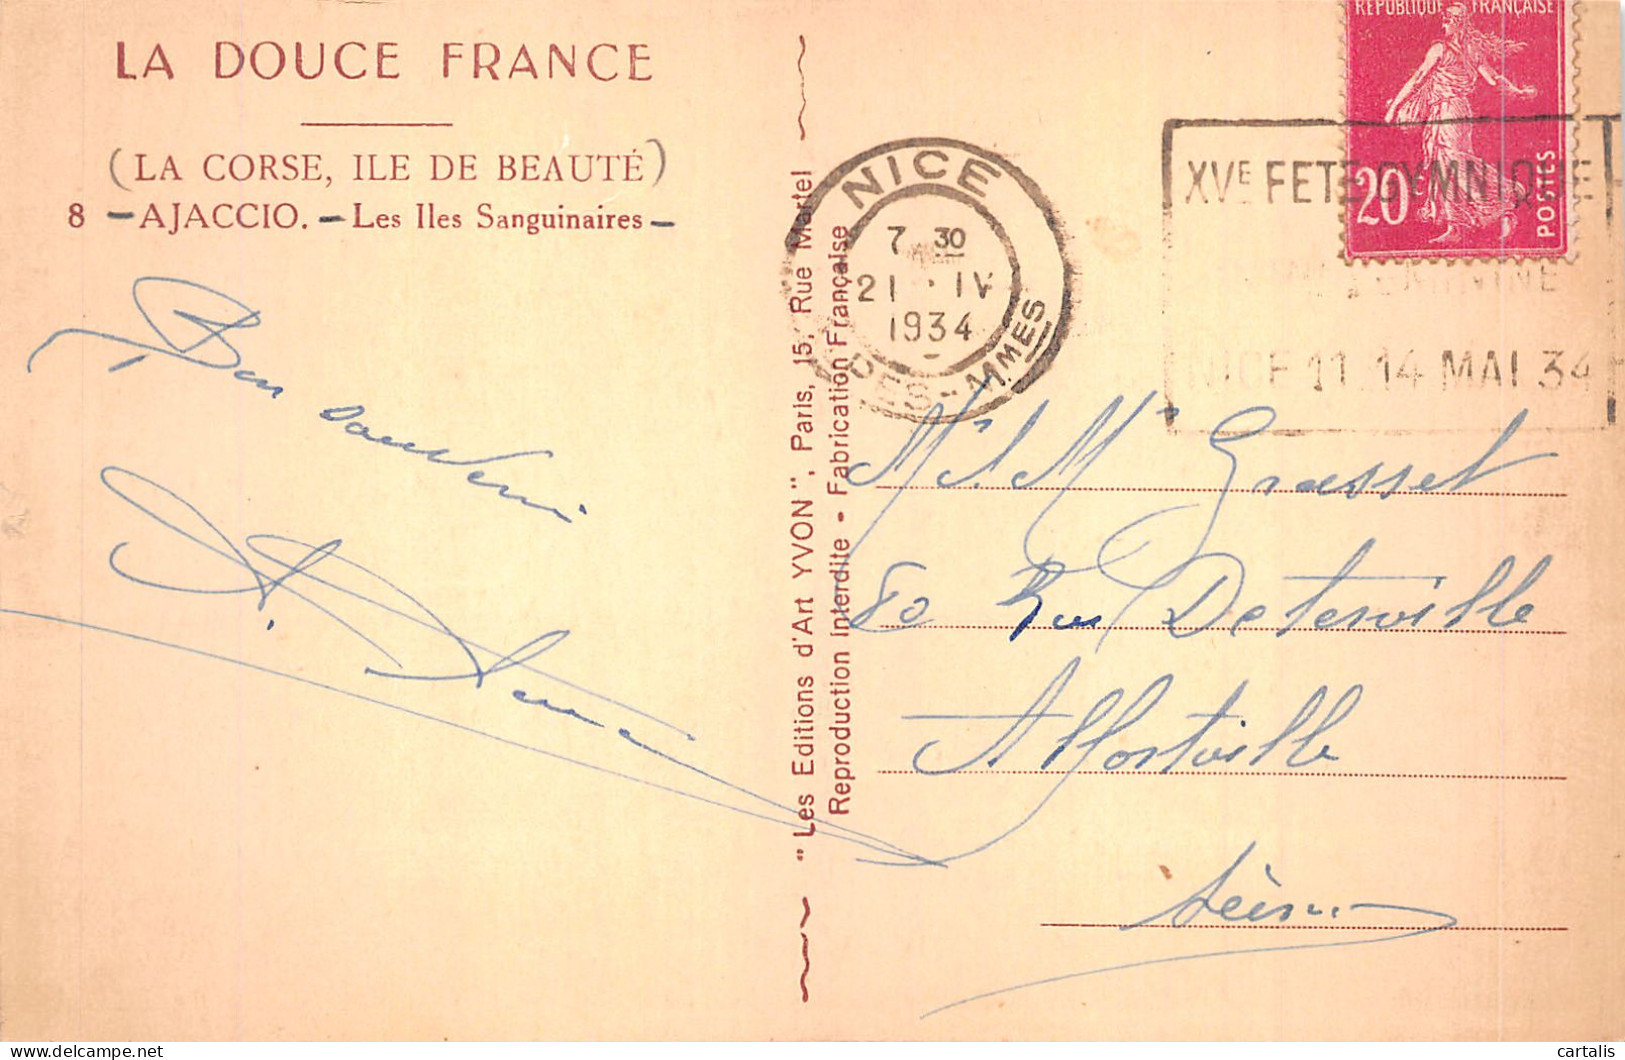 LA DOUCE FRANCE
(LA CORSE, ILE DE BEAUTÉ)
8 — AJACCIO. — Les Iles Sanguinaires —
Bon souvenir
"Les Editions d'Art YVON", Paris, 15, Rue Martel
Reproduction Interdite - Fabrication Française
NICE
7 30
21 · IV
1934
DES A.-MMES
REPUBLIQUE FRANÇAISE
20c
POSTES
XVE FETE GYMNIQUE
FEMININE
NICE 11 14 MAI 34
Mr Grasset
80 Rue Deterville
Alfortville
Seine
cartalis